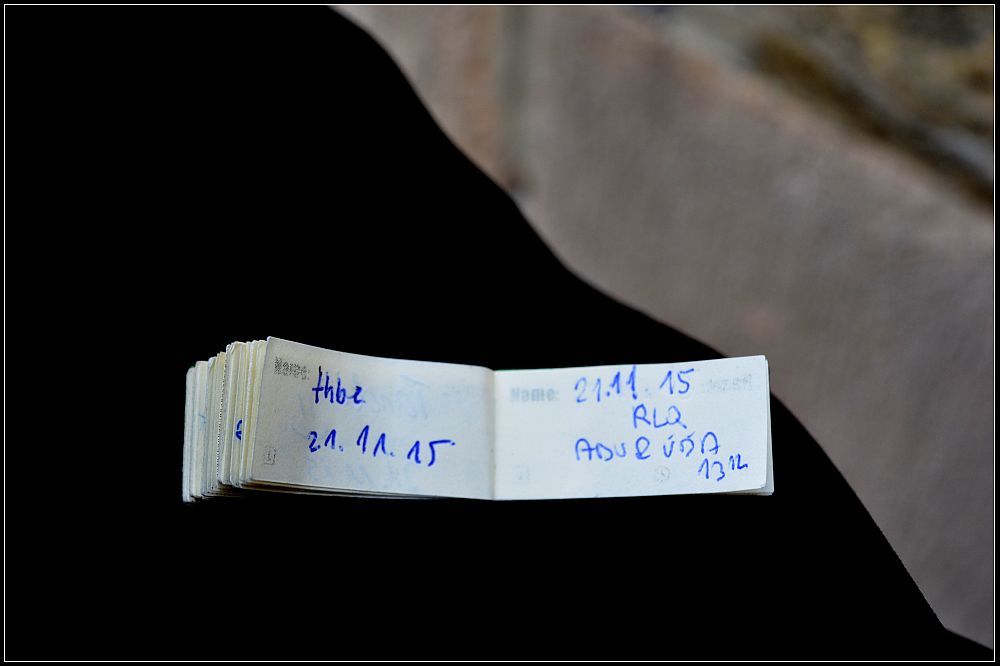 Name:
thbz
21.11.15
Name: 21.11.15
RLQ
13¹²